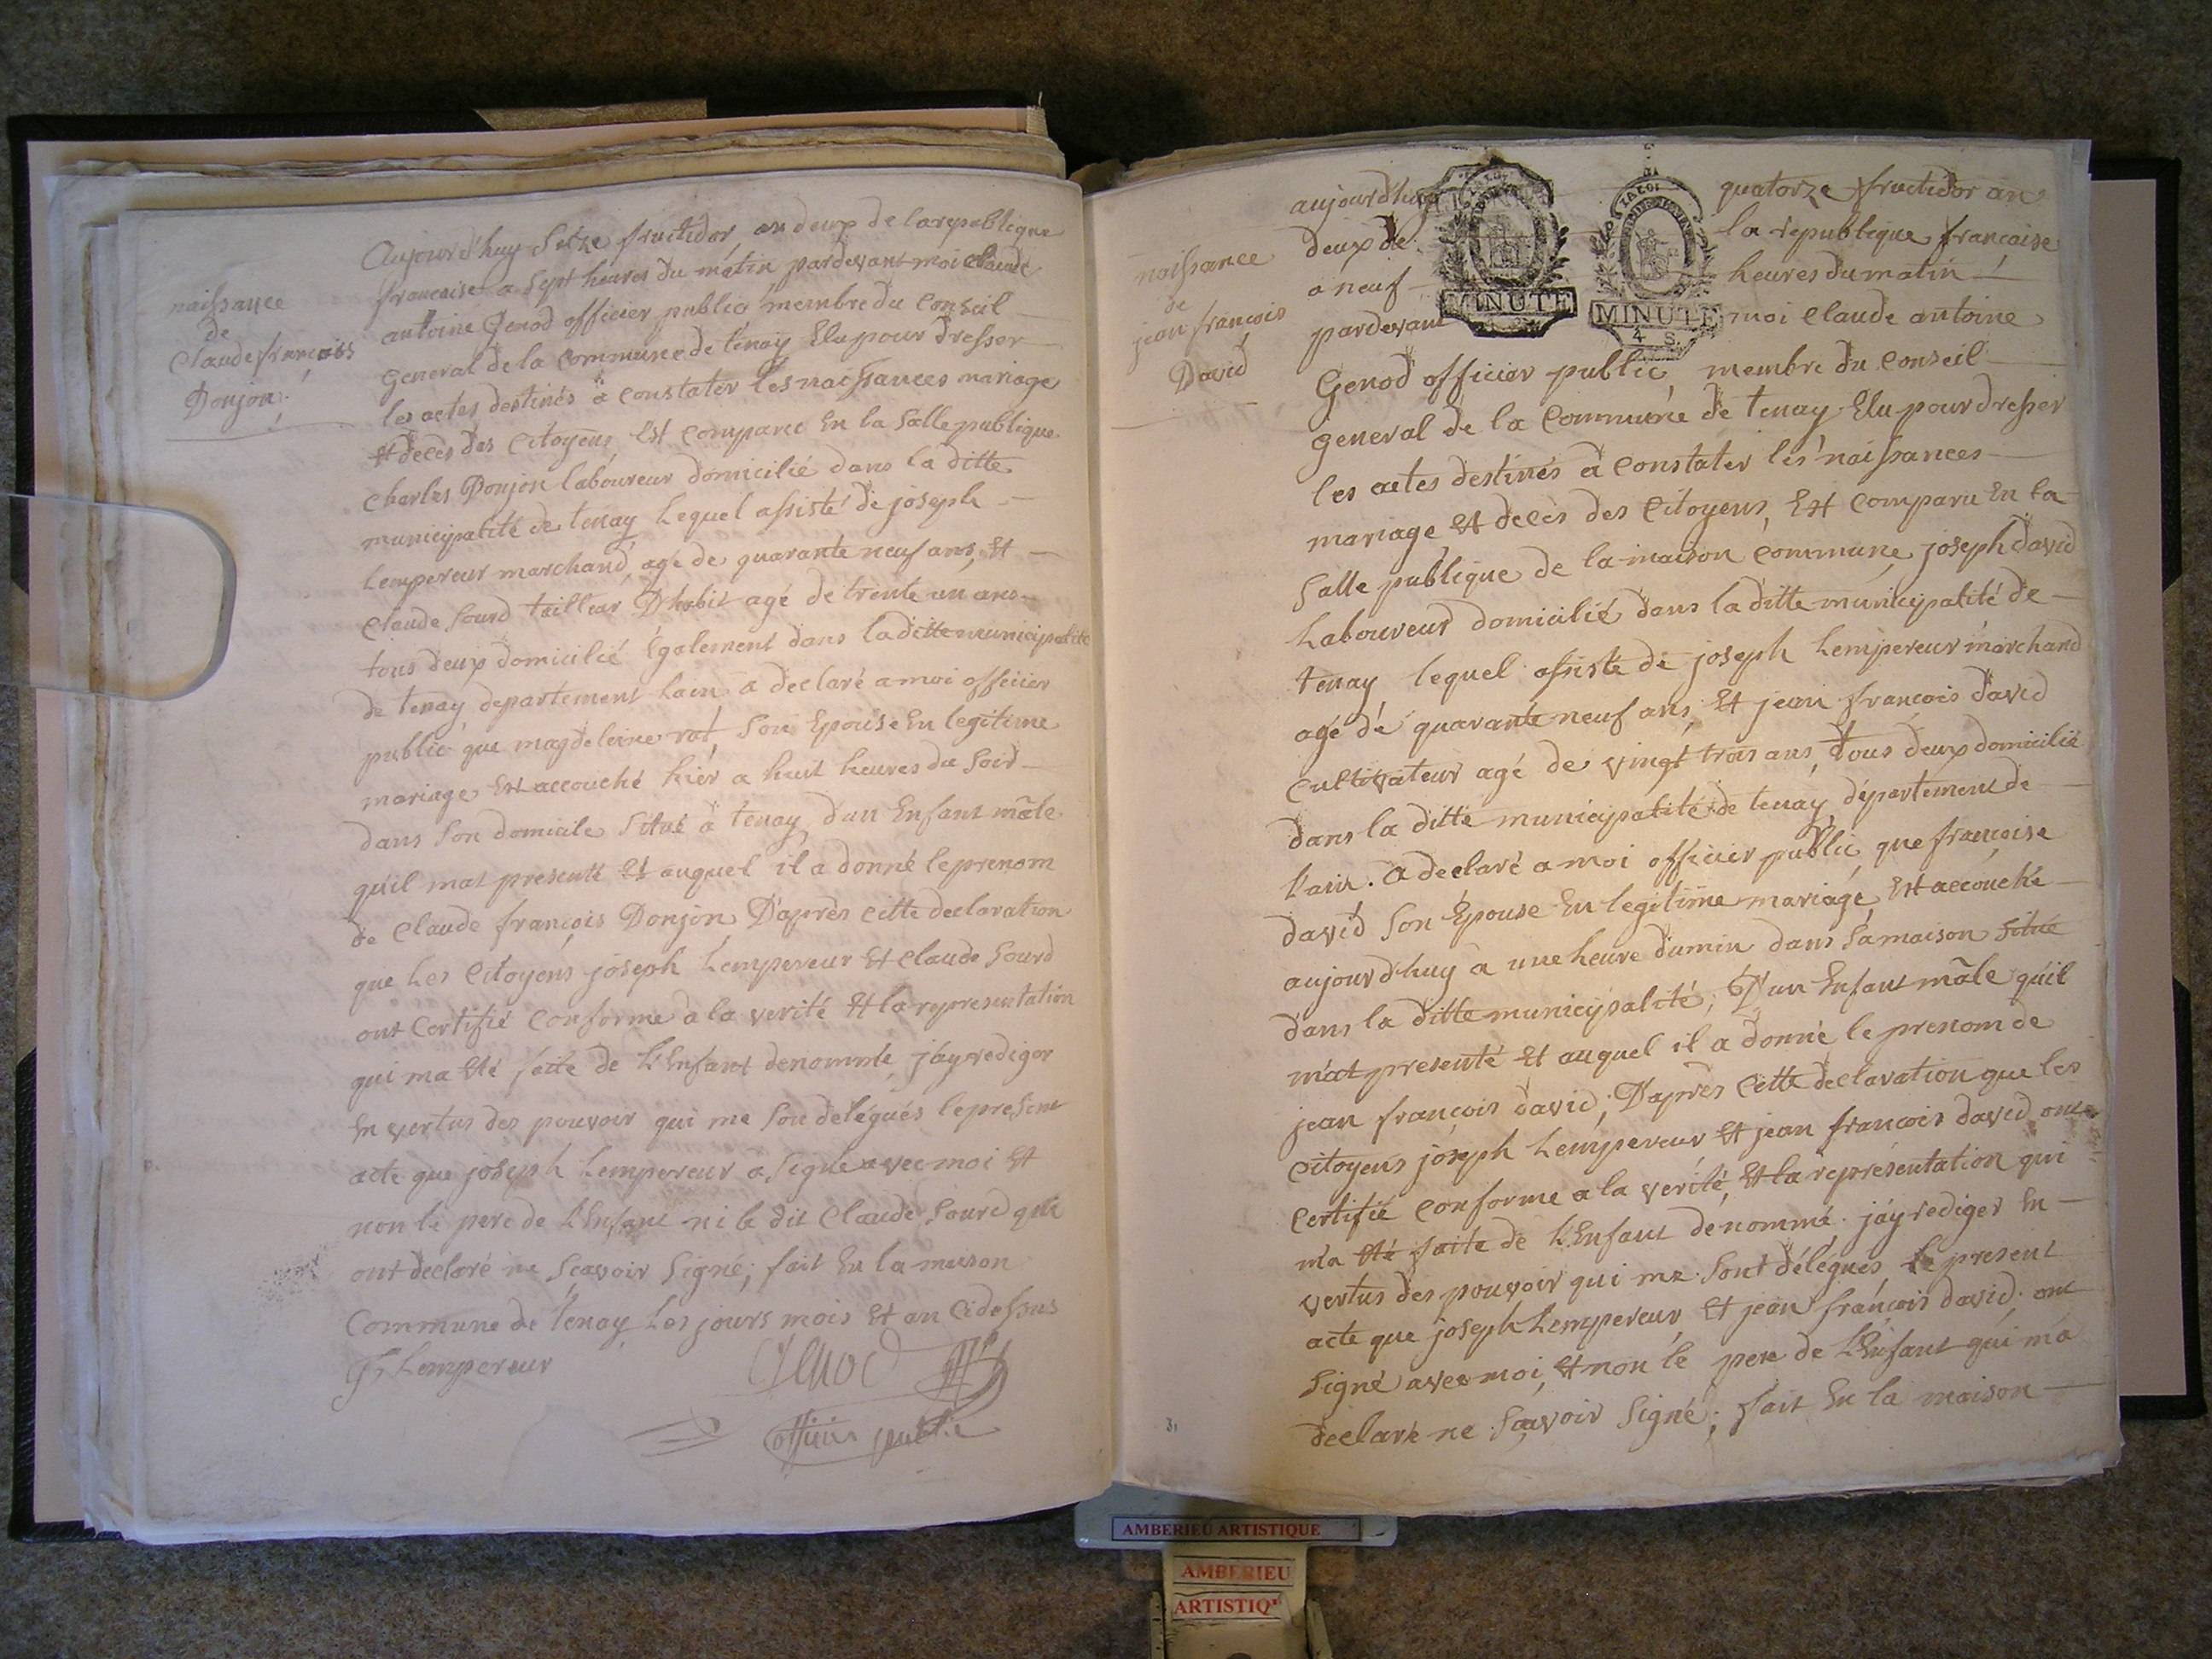 naissance
de
Claude françois
Donjon.
Aujourd'huy Seize fructidor, an deux de la republique
francaise a Sept heures du matin pardevant moi Claude
antoine Genod officier public membre du Conseil
General de la Commune de tenay Elu pour dresser
les actes destinés a constater les naissances mariage
Et deces des Citoyens, Est comparu En la Salle publique
Charles Donjon laboureur domicilié dans la ditte
municipalité de tenay Lequel assisté de joseph
Lempereur marchand, agé de quarante neuf ans, Et
Claude Sourd tailleur D'habit agé de trente un ans
tous deux domicilié Egalement dans la ditte municipalité
de tenay departement Lain a declaré a moi officier
public que magdeleine rat, Son Epouse En legitime
mariage Est accouché hier a huit heures du Soir
dans Son domicile Situé a tenay, d'un Enfant mâle
quil mat presenté Et auquel il a donné le prenom
de Claude françois Donjon D'après Cette declaration
que Les Citoyens joseph Lempereur Et Claude Sourd
ont Certifié Conforme a la verité Et la representation
qui ma Eté faite de L'Enfant denommé, j'ay rediger
En vertus des pouvoir qui me Son delégués le present
acte que joseph Lempereur a Signé avec moi Et
non le pere de L'Enfant ni le dit Claude Sourd qui
ont declaré ne Scavoir Signé; fait En la maison
Commune de tenay Les jours mois Et an Cidessus
Lempereur
Genod
officier public
naissance
de
jean françois
David
aujourd'huy quatorze fructidor an
deux de la republique francaise
a neuf heures du matin
pardevant moi Claude antoine
MINUTE
MINUTE
4 S.
Genod officier public, membre du Conseil
General de la Commune de tenay Elu pour dresser
les actes destinés a Constater les naissances
mariage Et decès des Citoyens, Est Comparu En la
Salle publique de la maison Commune joseph david
Laboureur domicilié dans la ditte municipalité de
tenay lequel assisté de joseph Lempereur marchand
agé de quarante neuf ans, Et jean françois david
Cultivateur agé de vingt trois ans, tous deux domicilié
dans la ditte municipalité de tenay, département de
Lain. a declaré a moi officier public que françoise
david Son Epouse En legitime mariage, Est accouché
aujourd'huy a une heure dumin dans Sa maison Situé
dans la ditte municipalité, D'un Enfant mâle quil
m'at presenté Et auquel il a donné le prenom de
jean françois david; D'après Cette declaration que les
Citoyens joseph Lempereur Et jean françois david ont
Certifié Conforme a la verité, Et la représentation qui
m'a Eté faite de L'Enfant denommé. j'ay rediger En
vertus des pouvoir qui me Sont délégués le present
acte que joseph Lempereur Et jean françois david ont
Signé avec moi, Et non le pere de L'Enfant qui m'a
declaré ne Sçavoir Signé; fait En la maison
31
AMBERIEU ARTISTIQUE
AMBERIEU
ARTISTIQ